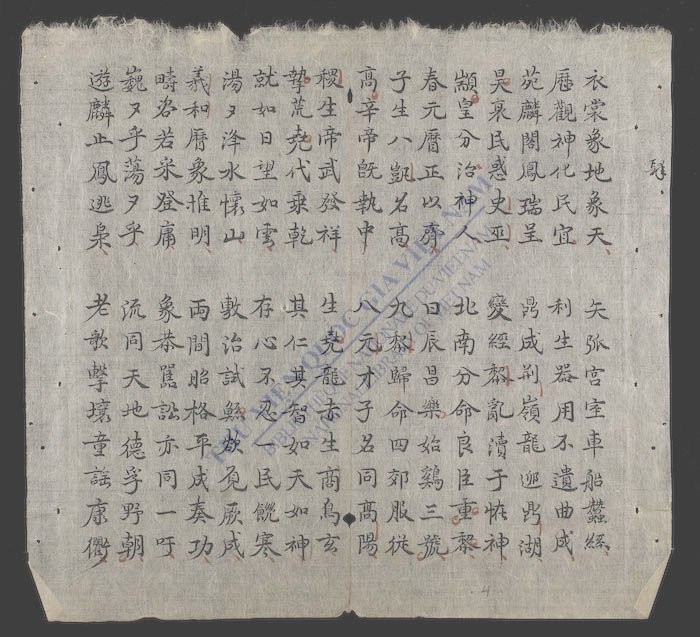 衣裳象地象天
矢弧宮室車船蠶絲
歷觀神化民宜
利生器用不遺曲成
苑麟閣鳳瑞呈
鼎成荊嶺龍迎鼎湖
昊衰民惑史巫
變經黎亂瀆于恠神
顓皇分治神人
北南分命良臣重黎
春元曆正以齊
日辰昌樂始鷄三號
子生八凱名高
九黎歸命四郊服從
高辛帝旣執中
八元才子名同高陽
稷生帝武發祥
生堯龍赤生商鳥玄
摯荒堯代乘乾
其仁其智如天如神
就如日望如雲
存心不忍 民饑寒
湯〻洚水懷山
敷治試鯀 厥咸
羲和曆象推明
兩間昭格平成奏功
疇咨若采登庸
象恭嚚訟亦同一吁
巍〻乎蕩〻乎
流同天地德孚野朝
遊麟止鳳逃梟
老歌擊壤童謠康衢
THƯ VIỆN QUỐC GIA VIỆT NAM
BIBLIOTHÈQUE NATIONALE DU VIETNAM
NATIONAL LIBRARY OF VIETNAM